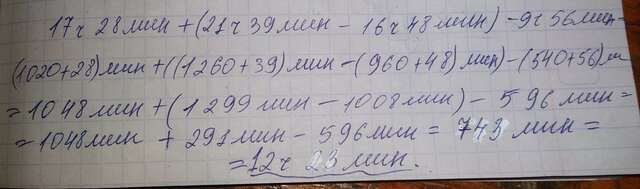 17ч 28мин + (21ч 39мин - 16ч 48мин) - 9ч 56мин =
(1020+28)мин + ((1260+39)мин - (960+48)мин) - (540+56)м
= 1048мин + (1299мин - 1008мин) - 596мин =
= 1048мин + 291мин - 596мин = 743мин =
= 12ч 23мин.